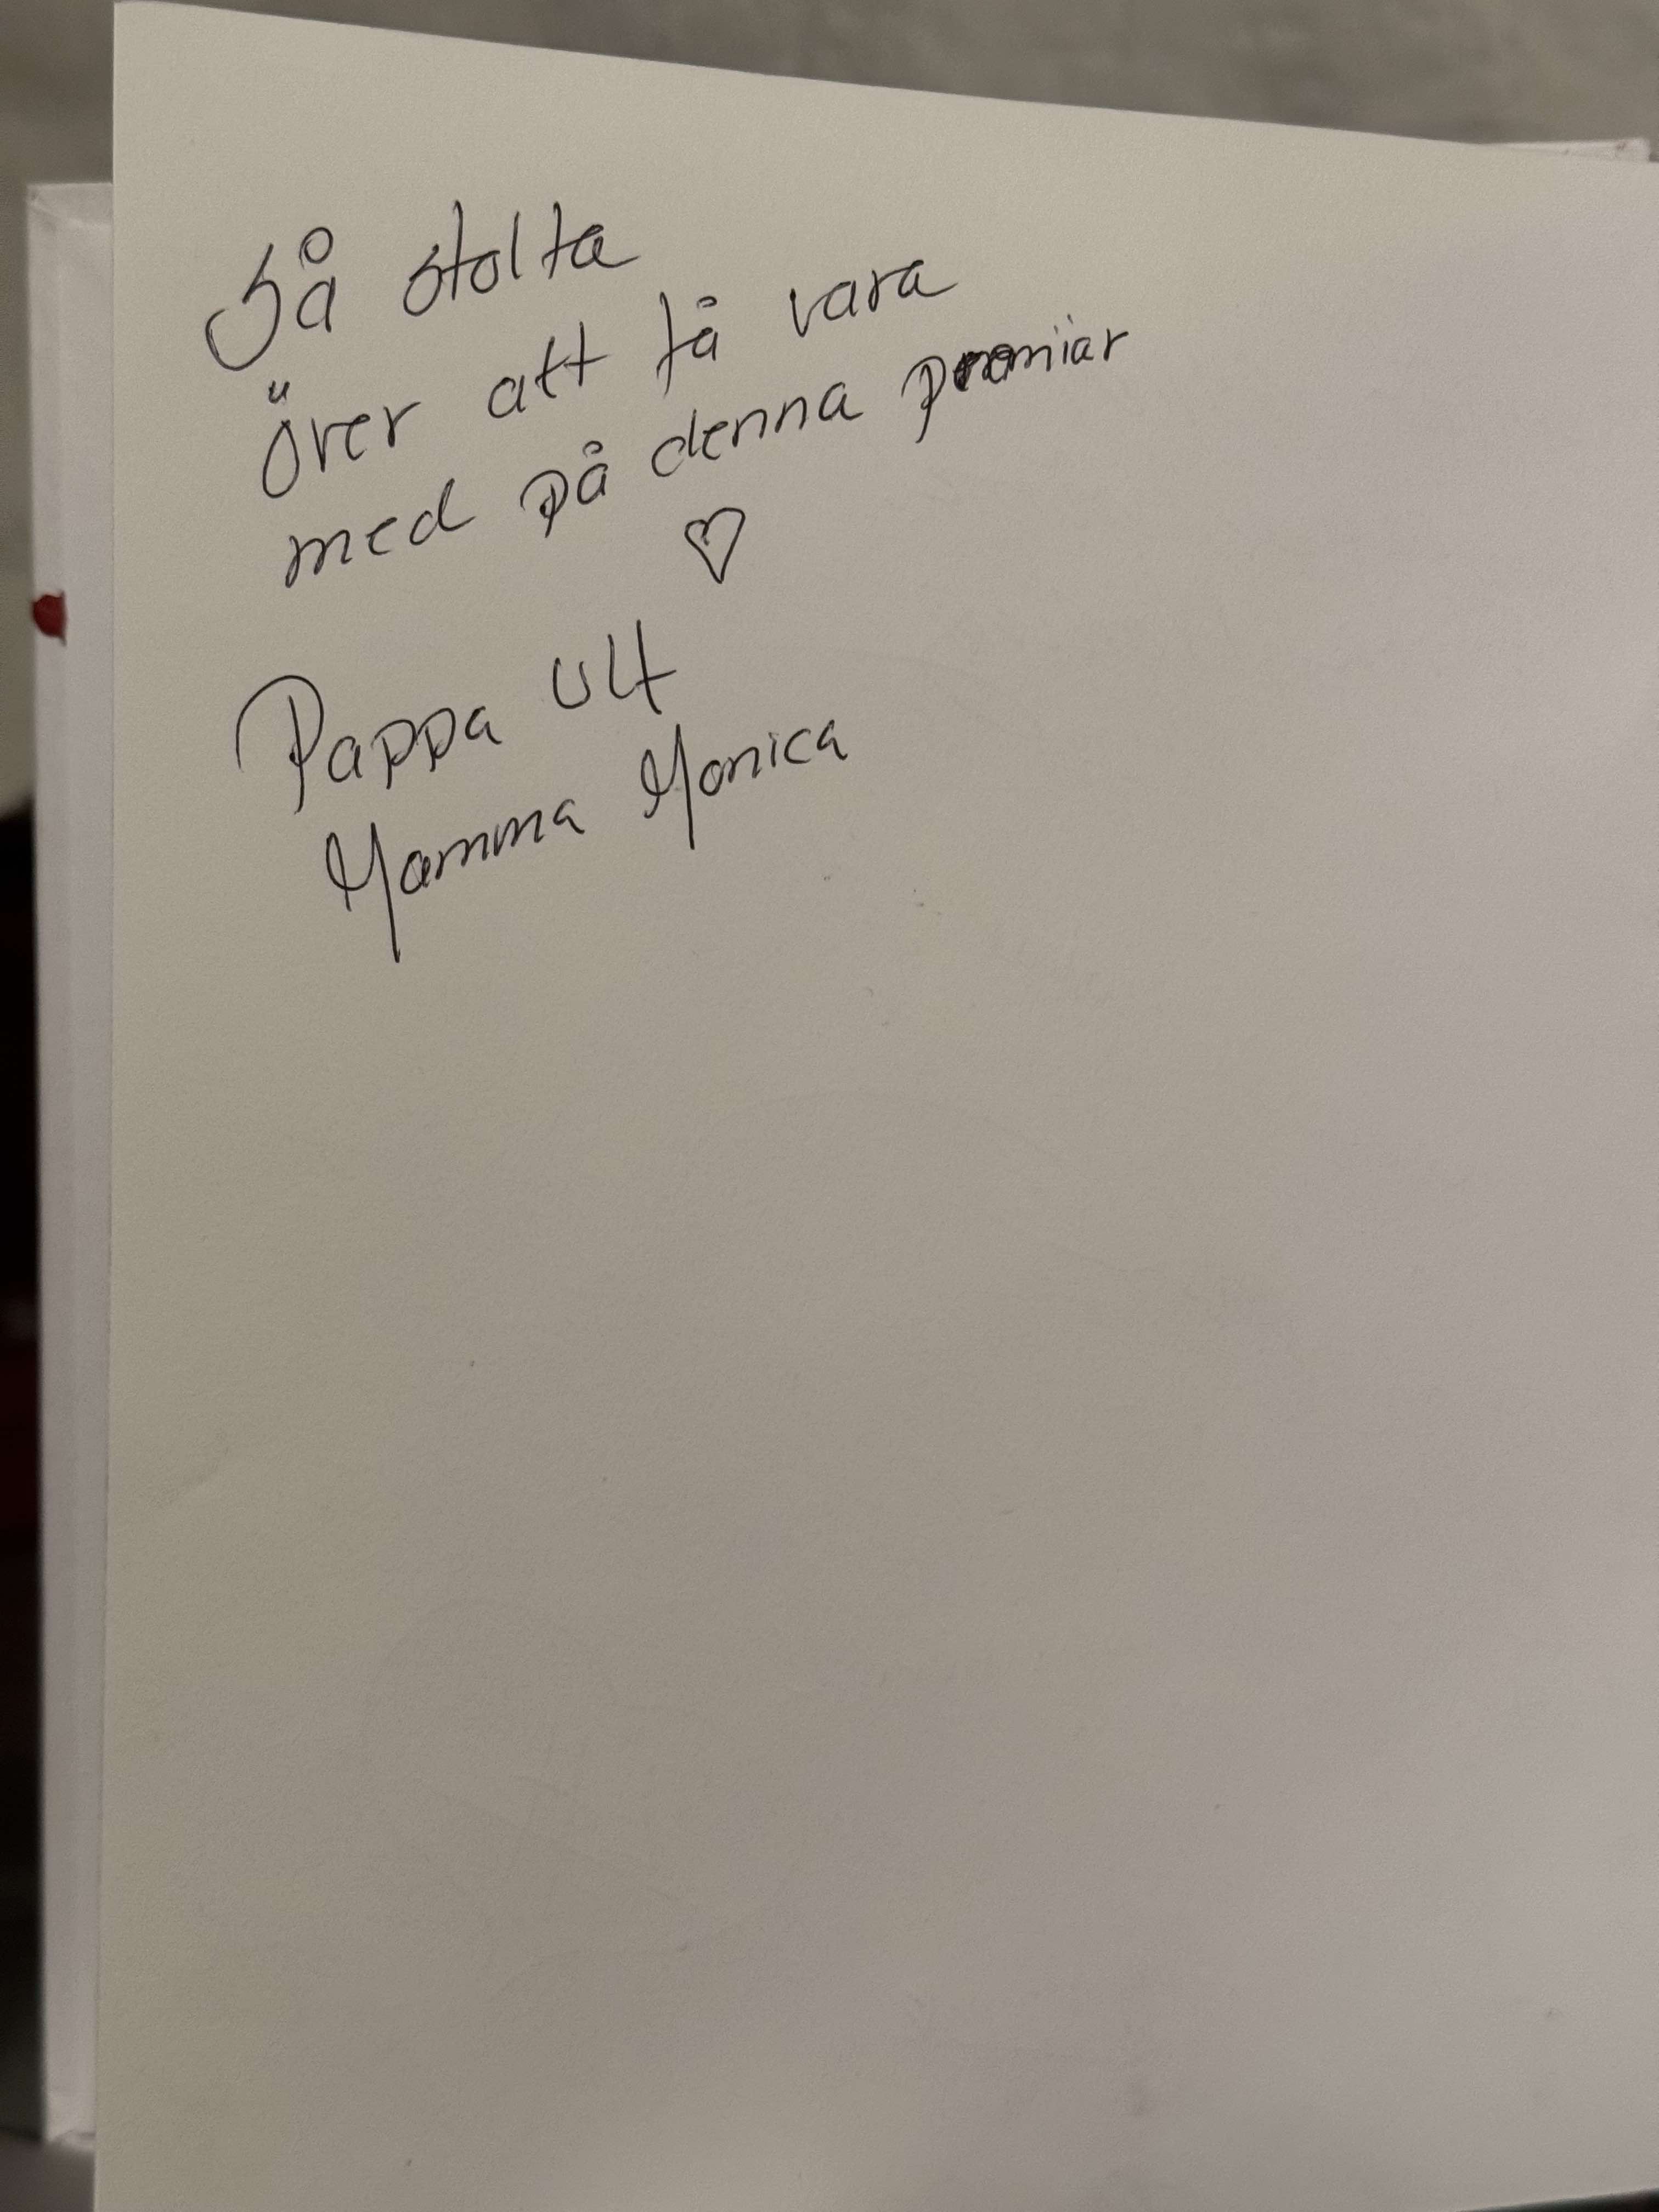 Så stolta
över att få vara
med på denna premiär
♡
Pappa Ulf
Mamma Monica